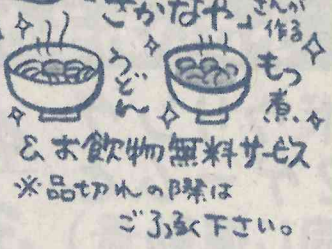 さかなやさんが作る
うどん
もつ煮、
&お飲物無料サービス
※品切れの際は
ご了承下さい。